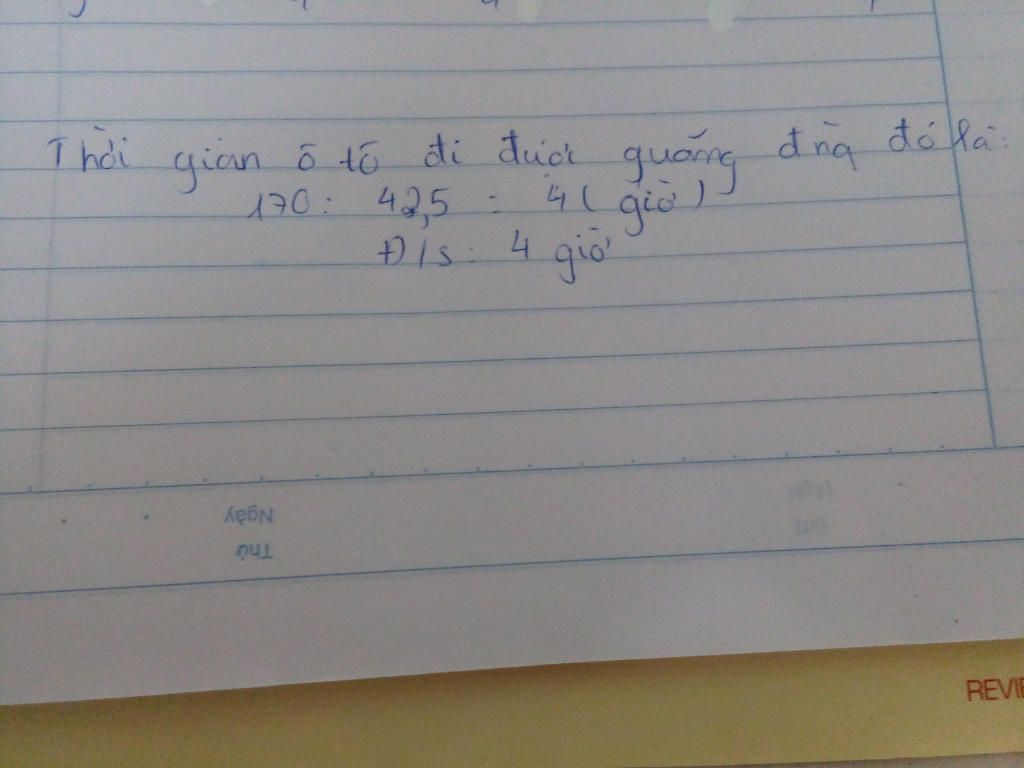 Thời gian ô tô đi được quãng đng đó là:
170 : 42,5 = 4 ( giờ )
Đ/s : 4 giờ
Ngày
Thứ
REVIE